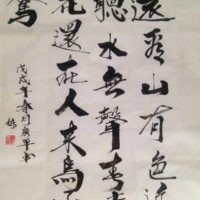 遠看山有色近
聽水無聲春
花還在人来鳥
驚
戊戌年春月